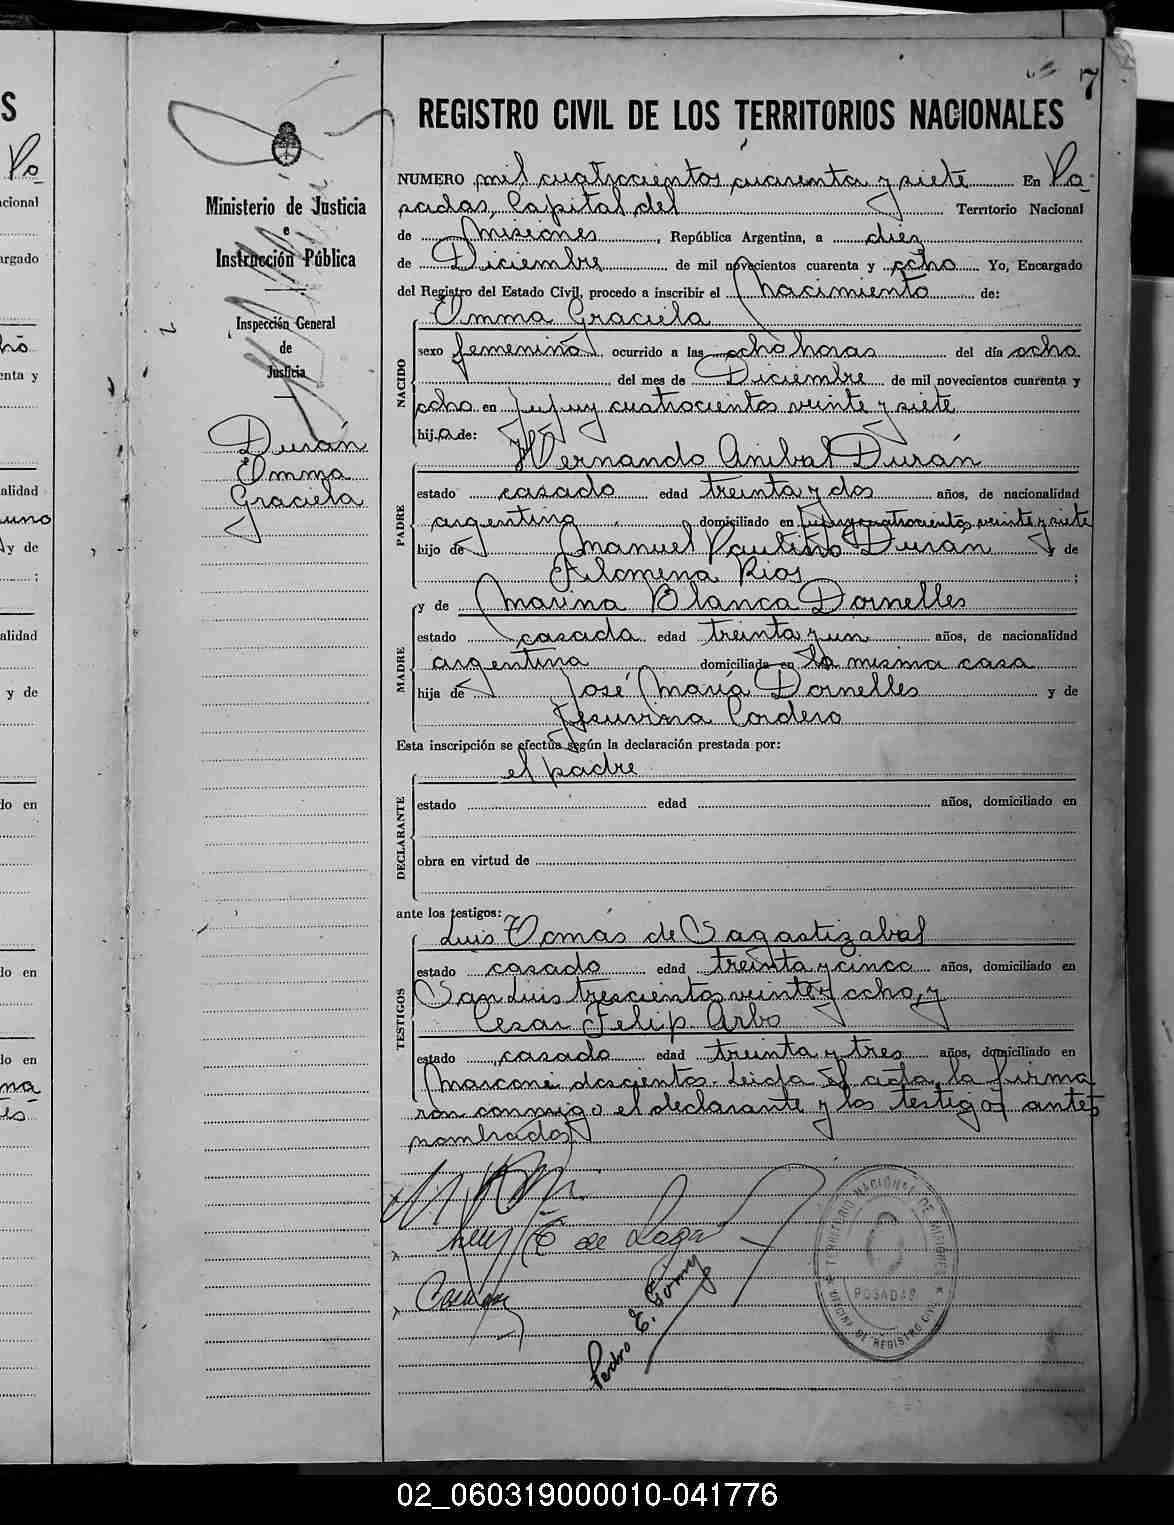 S
Po
acional
argado
hó
enta y
alidad
uno
y de
;
alidad
y de
lo en
lo en
lo en
7
REGISTRO CIVIL DE LOS TERRITORIOS NACIONALES
Ministerio de Justicia
e
Instrucción Pública
Inspección General
de
Justicia
Durán
Emma
Graciela
NUMERO mil cuatrocientos cuarenta y siete En Po
sadas, Capital del Territorio Nacional
de Misiones, República Argentina, a diez
de Diciembre de mil novecientos cuarenta y ocho Yo, Encargado
del Registro del Estado Civil, procedo a inscribir el Nacimiento de:
NACIDO
Emma Graciela
sexo femenino ocurrido a las ocho horas del día ocho
del mes de Diciembre de mil novecientos cuarenta y
ocho en Jujuy cuatrocientos veinte y siete
hija de:
PADRE
Hernando Anibal Durán
estado casado edad treinta y dos años, de nacionalidad
argentina domiciliado en Jujuy cuatrocientos veinte y siete
hijo de Manuel Paulino Durán y de
Filomena Rios ;
MADRE
y de Marina Blanca Dornelles
estado casada edad treinta y un años, de nacionalidad
argentina domiciliada en la misma casa
hija de José María Dornelles y de
Jesuvina Cordero
Esta inscripción se efectúa según la declaración prestada por:
DECLARANTE
el padre
estado edad años, domiciliado en
obra en virtud de
ante los testigos:
TESTIGOS
Luis Tomás de Sagastizabal
estado casado edad treinta y cinco años, domiciliado en
San Luis trescientos veinte y ocho, y
Cesar Felip Arbo
estado casado edad treinta y tres años, domiciliado en
Marconi doscientos. Leida el acta, la firma
ron conmigo el declarante y los testigos antes
nombrados
Pedro E.
TERRITORIO NACIONAL DE MISIONES
POSADAS
OFICINA DE REGISTRO CIVIL
02_060319000010-041776